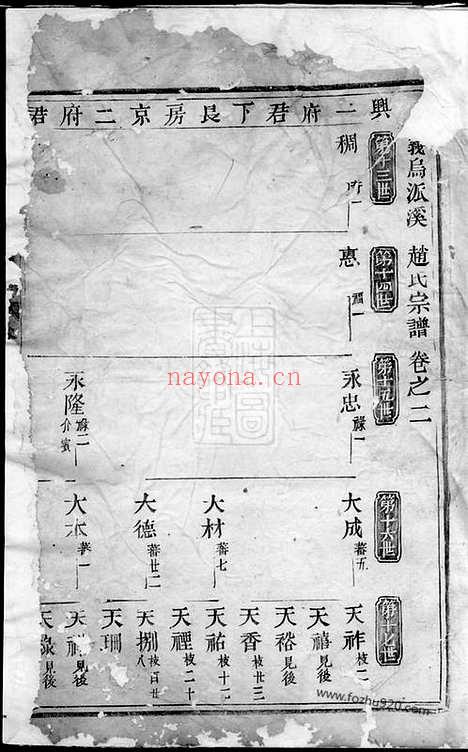 義烏派溪 趙氏宗譜 卷之二
興二府君下良房京二府君
第十三世
稠 所一
第十四世
惠 福一
第十五世
永忠 祿一
永隆 祿二 介賓
第十六世
大成 蕃五
大材 蕃七
大德 蕃廿二
大本 蕃一
第十七世
天祚 枝二
天禧 見後
天裕 見後
天香 枝廿三
天祐 枝十一
天禋 枝二十
天捌 枝百廿八
天珊
天 見後
天祿 見後
nayona.cn
www.fozhu920.com